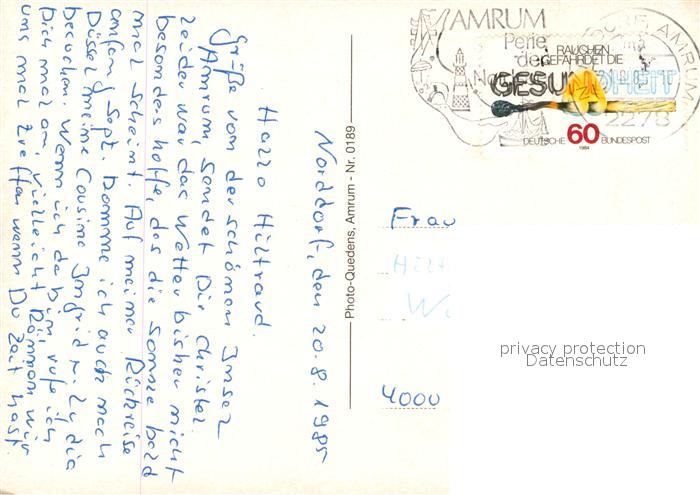 Norddorf, den 20.8.1985
Hallo Hiltraud.
Grüße von der schönen Insel
Amrum, sendet Dir Christel.
Leider war das Wetter bisher nicht
besonders hoffe, das die Sonne bald
mal scheint. Auf meiner Rückreise
anfang Sept. komme ich auch nach
Düssel meine Cousine Ingrid
besuchen. Wenn ich da bin, rufe ich
Dich mal an, vielleicht können wir
uns mal treffen wenn Du Zeit hast
Photo-Quedens, Amrum - Nr. 0189
AMRUM
Perle
der
RAUCHEN
GEFÄHRDET DIE
GESUNDHEIT
2278
60
DEUTSCHE BUNDESPOST
1984
Frau
Hilt
4000
privacy protection
Datenschutz